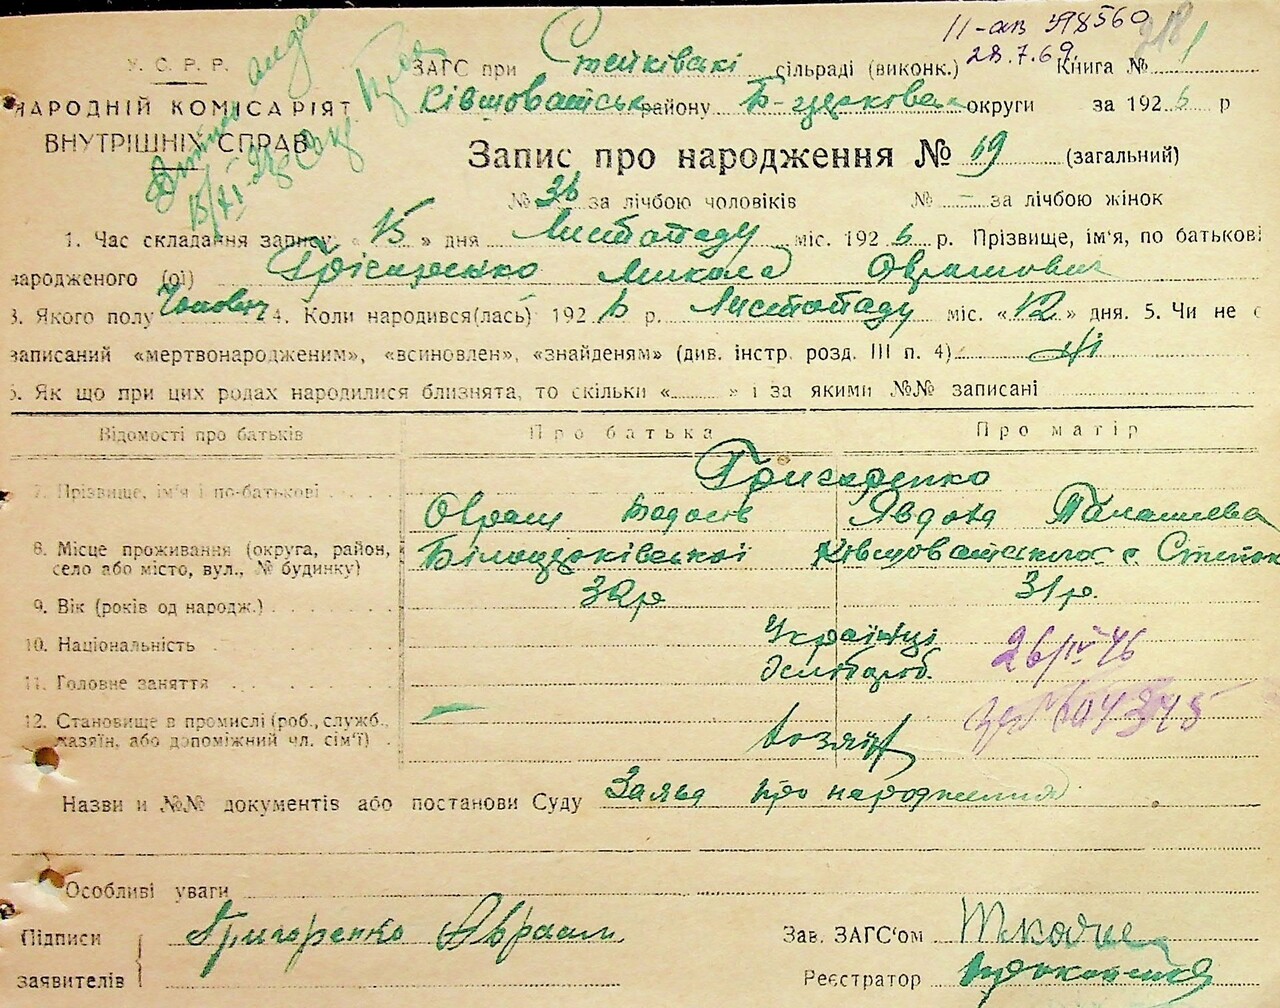 II-ав 398560
28.7.69.
У. С. Р. Р.
НАРОДНІЙ КОМІСАРІЯТ
ВНУТРІШНІХ СПРАВ
ЗАГС при сільраді (виконк.) Книга № 1
району Б-церковськ округи за 1926 р
Запис про народження № 19 (загальний)
№ за лічбою чоловіків № - за лічбою жінок
1. Час складання запису « 15 » дня Листопаду міс. 1926 р. Прізвище, ім'я, по батькові
народженого (ої) Микола Овраамович
3. Якого полу Чоловіч 4. Коли народився(лась) 1926 р. Листопаду міс. «12» дня. 5. Чи не є
записаний «мертвонародженим», «всиновлен», «знайденям» (див. інстр. розд. III п. 4) Ні
6. Як що при цих родах народилися близнята, то скільки « » і за якими №№ записані
Відомості про батьків Про батька Про матір
7. Прізвище, ім'я і по-батькові
Овраам Явдоха
8. Місце проживання (округа, район, село або місто, вул., № будинку) Білоцерківської Ківшоватського с. Степок
9. Вік (років од народж.) 32р 31р.
10. Національність Українці
26/IV 46
11. Головне заняття Хлібороб.
12. Становище в промислі (роб., служб., хазяїн, або допоміжний чл. сім'ї) Хозяїн
Назви и №№ документів або постанови Суду Заява про народження
Особливі уваги
Підписи заявителів Григоренко Авраам
Зав. ЗАГС'ом
Реєстратор